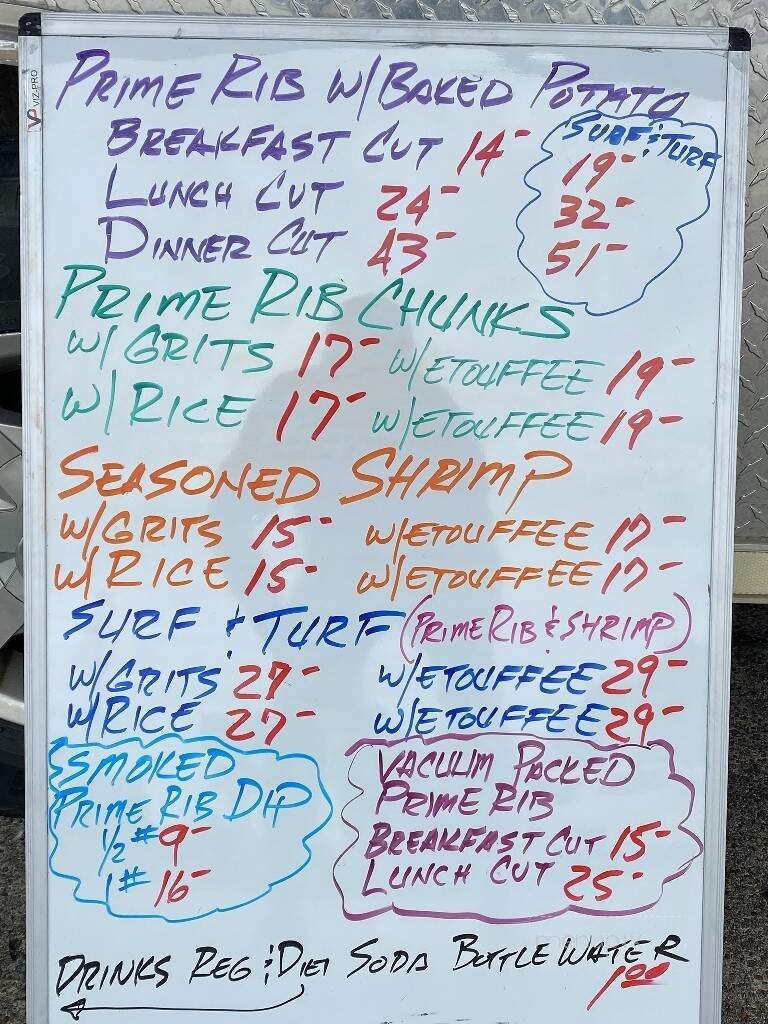 VP VIZ-PRO
PRIME RIB W/BAKED POTATO
SURF & TURF
BREAKFAST CUT 14- 19-
LUNCH CUT 24- 32-
DINNER CUT 43- 51-
PRIME RIB CHUNKS
W/GRITS 17- W/ETOUFFEE 19-
W/RICE 17- W/ETOUFFEE 19-
SEASONED SHRIMP
W/GRITS 15- W/ETOUFFEE 17-
W/RICE 15- W/ETOUFFEE 17-
SURF & TURF (PRIME RIB & SHRIMP)
W/GRITS 27- W/ETOUFFEE 29-
W/RICE 27- W/ETOUFFEE 29-
SMOKED
PRIME RIB DIP
1/2# 9-
1# 16-
VACUUM PACKED
PRIME RIB
BREAKFAST CUT 15-
LUNCH CUT 25-
DRINKS REG & DIET SODA BOTTLE WATER
1.00